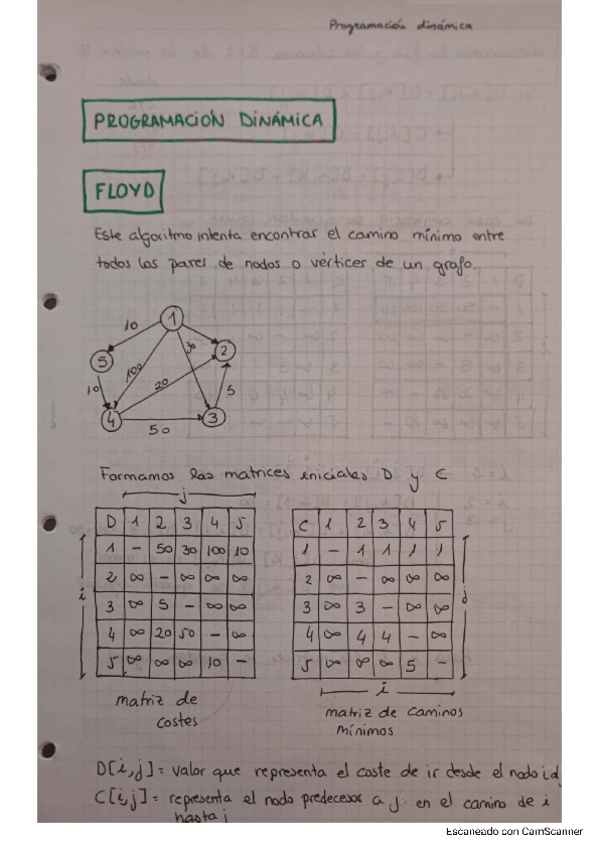 Programación dinámica
PROGRAMACIÓN DINÁMICA
FLOYD
Este algoritmo intenta encontrar el camino mínimo entre
todos los pares de nodos o vértices de un grafo.
1
10
5
30
2
100
10
20
5
4
3
50
Formamos las matrices iniciales D y C
j
D 1 2 3 4 5
1 - 50 30 100 10
2 ∞ - ∞ ∞ ∞
3 ∞ 5 - ∞ ∞
4 ∞ 20 50 - ∞
5 ∞ ∞ ∞ 10 -
i
matriz de
costes
C 1 2 3 4 5
1 - 1 1 1 1
2 ∞ - ∞ ∞ ∞
3 ∞ 3 - ∞ ∞
4 ∞ 4 4 - ∞
5 ∞ ∞ ∞ 5 -
j
i
matriz de caminos
mínimos
D[i,j] = valor que representa el coste de ir desde el nodo i
C[i,j] = representa el nodo predecesor a j en el camino de i
hasta j
Escaneado con CamScanner